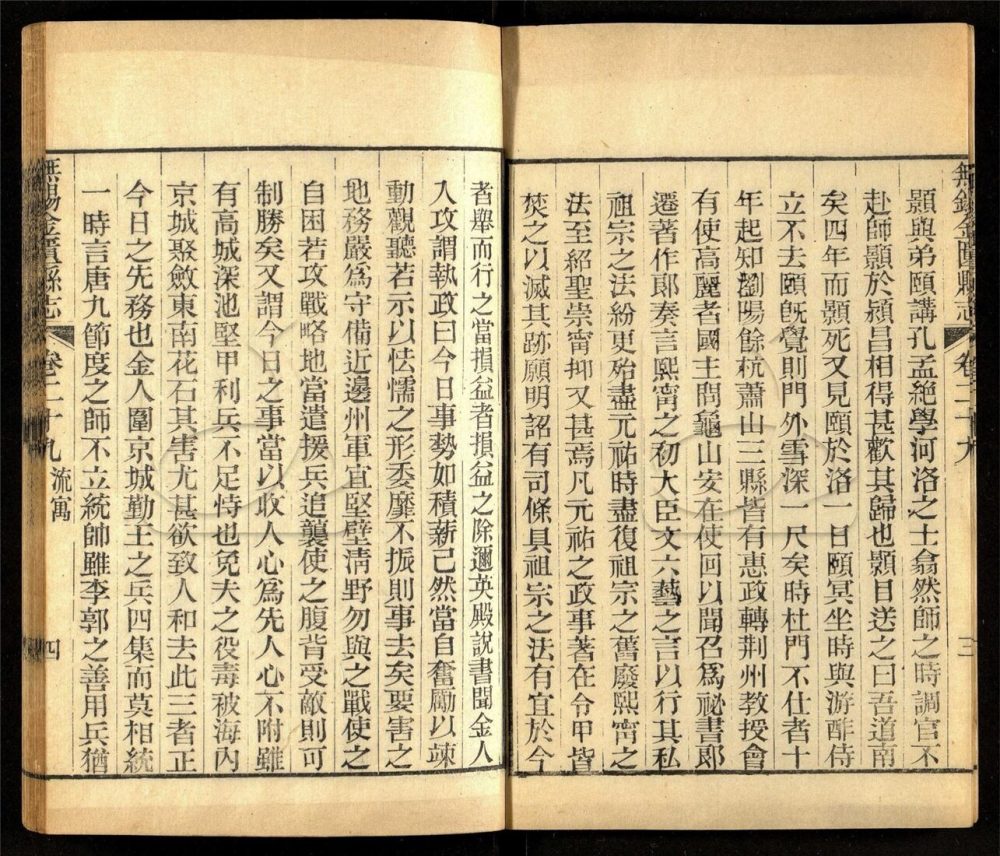 無錫金匱縣志 卷二十九 三
顥與弟頤講孔孟絶學河洛之士翕然師之時調官不
赴師顥於潁昌相得甚歡其歸也顥目送之曰吾道南
矣四年而顥死又見頤於洛一日頤冥坐時與游酢侍
立不去頤旣覺則門外雪深一尺矣時杜門不仕者十
年起知瀏陽餘杭蕭山三縣皆有惠政轉荆州教授會
有使高麗者國主問龜山安在使回以聞召爲祕書郎
遷著作郎奏言熙甯之初大臣文六藝之言以行其私
祖宗之法紛更殆盡元祐時盡復祖宗之舊廢熙甯之
法至紹聖崇甯抑又甚焉凡元祐之政事著在令甲皆
焚之以滅其跡願明詔有司條具祖宗之法有宜於今
者舉而行之當損益者損益之除邇英殿說書聞金人
入攻謂執政曰今日事勢如積薪已然當自奮勵以竦
動觀聽若示以怯懦之形委靡不振則事去矣要害之
地務嚴爲守備近邊州軍宜堅壁清野勿與之戰使之
自困若攻戰略地當遣援兵追襲使之腹背受敵則可
制勝矣又謂今日之事當以收人心爲先人心不附雖
有高城深池堅甲利兵不足恃也免夫之役毒被海內
京城聚斂東南花石其害尤甚欲致人和去此三者正
今日之先務也金人圍京城勤王之兵四集而莫相統
一時言唐九節度之師不立統帥雖李郭之善用兵猶
無錫金匱縣志 卷二十九 流寓 四